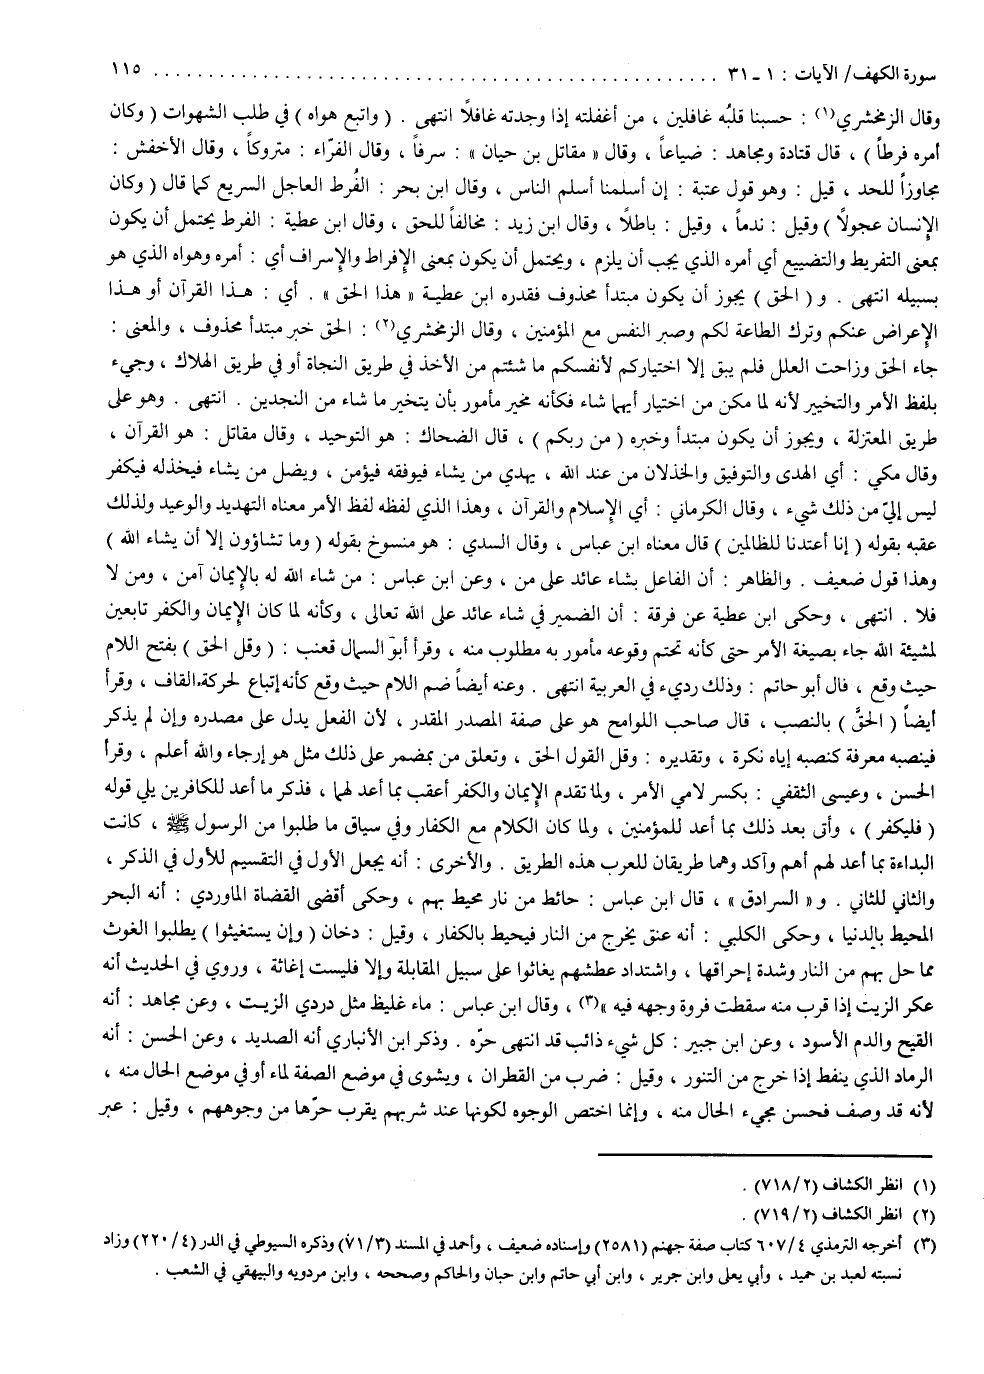 سورة الكهف/ الآيات : ١ ـ ٣١ ........................................................ ١١٥
وقال الزمخشري(١) : حسبنا قلبُه غافلين ، من أغفلته إذا وجدته غافلًا انتهى . ( واتبع هواه ) في طلب الشهوات ( وكان
أمره فرطاً ) ، قال قتادة ومجاهد : ضياعاً ، وقال « مقاتل بن حيان » : سرفاً ، وقال الفرّاء : متروكاً ، وقال الأخفش :
مجاوزاً للحد ، قيل : وهو قول عتبة : إن أسلمنا أسلم الناس ، وقال ابن بحر : الفُرط العاجل السريع كما قال ( وكان
الإنسان عجولاً ) وقيل : ندماً ، وقيل : باطلًا ، وقال ابن زيد : مخالفاً للحق ، وقال ابن عطية : الفرط يحتمل أن يكون
بمعنى التفريط والتضييع أي أمره الذي يجب أن يلزم ، ويحتمل أن يكون بمعنى الإفراط والإسراف أي : أمره وهواه الذي هو
بسبيله انتهى . و ( الحق ) يجوز أن يكون مبتدأ محذوف فقدره ابن عطية « هذا الحق » . أي : هذا القرآن أو هذا
الإعراض عنكم وترك الطاعة لكم وصبر النفس مع المؤمنين ، وقال الزمخشري(٢) : الحق خبر مبتدأ محذوف ، والمعنى :
جاء الحق وزاحت العلل فلم يبق إلا اختياركم لأنفسكم ما شئتم من الأخذ في طريق النجاة أو في طريق الهلاك ، وجيء
بلفظ الأمر والتخيير لأنه لما مكن من اختيار أيهما شاء فكأنه مخير مأمور بأن يتخير ما شاء من النجدين . انتهى . وهو على
طريق المعتزلة ، ويجوز أن يكون مبتدأ وخبره ( من ربكم ) ، قال الضحاك : هو التوحيد ، وقال مقاتل : هو القرآن ،
وقال مكي : أي الهدى والتوفيق والخذلان من عند الله ، يهدي من يشاء فيوفقه فيؤمن ، ويضل من يشاء فيخذله فيكفر
ليس إليّ من ذلك شيء ، وقال الكرماني : أي الإسلام والقرآن ، وهذا الذي لفظه لفظ الأمر معناه التهديد والوعيد ولذلك
عقبه بقوله ( إنا أعتدنا للظالمين ) قال معناه ابن عباس ، وقال السدي : هو منسوخ بقوله ( وما تشاؤون إلا أن يشاء الله )
وهذا قول ضعيف . والظاهر : أن الفاعل بشاء عائد على من ، وعن ابن عباس : من شاء الله له بالإيمان آمن ، ومن لا
فلا . انتهى ، وحكى ابن عطية عن فرقة : أن الضمير في شاء عائد على الله تعالى ، وكأنه لما كان الإيمان والكفر تابعين
لمشيئة الله جاء بصيغة الأمر حتى كأنه تحتم وقوعه مأمور به مطلوب منه ، وقرأ أبو السمال قعنب : ( وقل الحق ) بفتح اللام
حيث وقع ، قال أبو حاتم : وذلك رديء في العربية انتهى . وعنه أيضاً ضم اللام حيث وقع كأنه إتباع لحركة القاف ، وقرأ
أيضاً ( الحقَّ ) بالنصب ، قال صاحب اللوامح هو على صفة المصدر المقدر ، لأن الفعل يدل على مصدره وإن لم يذكر
فينصبه معرفة كنصبه إياه نكرة ، وتقديره : وقل القول الحق ، وتعلق من بمضمر على ذلك مثل هو إرجاء والله أعلم ، وقرأ
الحسن ، وعيسى الثقفي : بكسر لامي الأمر ، ولما تقدم الإيمان والكفر أعقب بما أعد لهما ، فذكر ما أعد للكافرين يلي قوله
( فليكفر ) ، وأتى بعد ذلك بما أعد للمؤمنين ، ولما كان الكلام مع الكفار وفي سياق ما طلبوا من الرسول ﷺ ، كانت
البداءة بما أعد لهم أهم وآكد وهما طريقان للعرب هذه الطريق . والأخرى : أنه يجعل الأول في التقسيم للأول في الذكر ،
والثاني للثاني . و « السرادق » ، قال ابن عباس : حائط من نار محيط بهم ، وحكى أقضى القضاة الماوردي : أنه البحر
المحيط بالدنيا ، وحكى الكلبي : أنه عنق يخرج من النار فيحيط بالكفار ، وقيل : دخان ( وإن يستغيثوا ) يطلبوا الغوث
مما حل بهم من النار وشدة إحراقها ، واشتداد عطشهم يغاثوا على سبيل المقابلة وإلا فليست إغاثة ، وروي في الحديث أنه
عكر الزيت إذا قرب منه سقطت فروة وجهه فيه »(٣) ، وقال ابن عباس : ماء غليظ مثل دردي الزيت ، وعن مجاهد : أنه
القيح والدم الأسود ، وعن ابن جبير : كل شيء ذائب قد انتهى حرّه . وذكر ابن الأنباري أنه الصديد ، وعن الحسن : أنه
الرماد الذي ينفط إذا خرج من التنور ، وقيل : ضرب من القطران ، ويشوى في موضع الصفة لماء أو في موضع الحال منه ،
لأنه قد وصف فحسن مجيء الحال منه ، وإنما اختص الوجوه لكونها عند شربهم يقرب حرّها من وجوههم ، وقيل : عبر
(١) انظر الكشاف (٧١٨/٢) .
(٢) انظر الكشاف (٧١٩/٢) .
(٣) أخرجه الترمذي ٦٠٧/٤ كتاب صفة جهنم (٢٥٨١) وإسناده ضعيف ، وأحمد في المسند (٧١/٣) وذكره السيوطي في الدر (٢٢٠/٤) وزاد
نسبته لعبد بن حميد ، وأبي يعلى وابن جرير ، وابن أبي حاتم وابن حبان والحاكم وصححه ، وابن مردويه والبيهقي في الشعب .